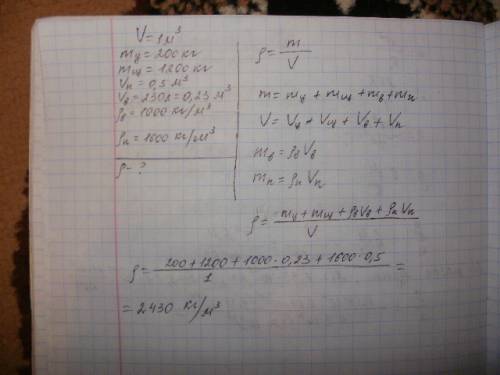 V = 1 м³
mц = 200 кг
mщ = 1200 кг
Vп = 0,5 м³
Vв = 230л = 0,23 м³
ρв = 1000 кг/м³
ρп = 1600 кг/м³
ρ - ?
ρ = m / V
m = mц + mщ + mв + mп
V = Vц + Vщ + Vв + Vп
mв = ρв Vв
mп = ρп Vп
ρ = (mц + mщ + ρв Vв + ρп Vп) / V
ρ = (200 + 1200 + 1000 · 0,23 + 1600 · 0,5) / 1 =
= 2430 кг/м³